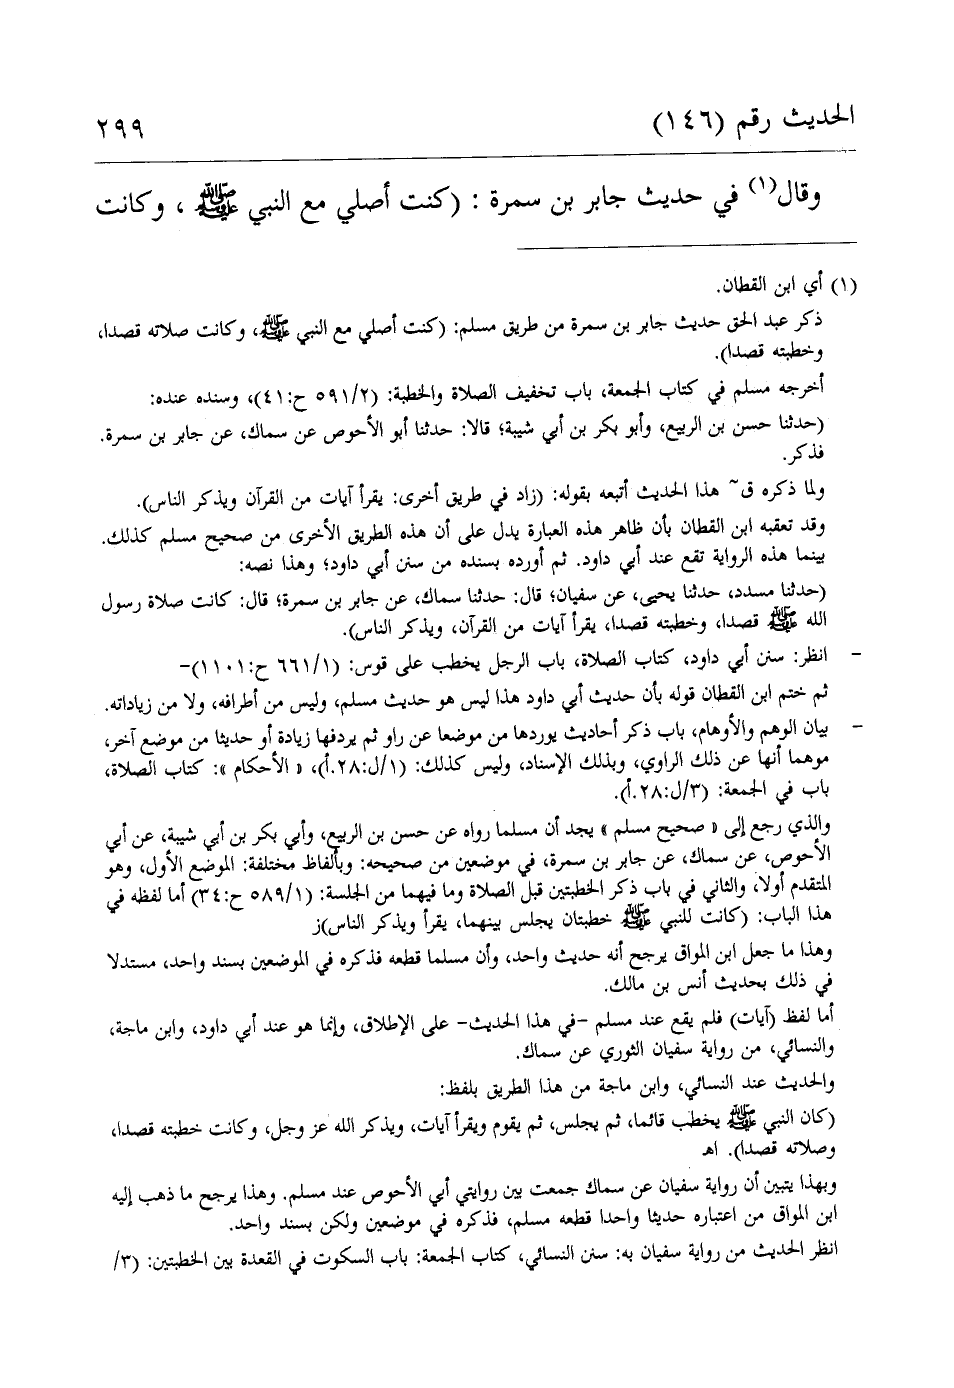 الحديث رقم (١٤٦)
٢٩٩
وقال(١) في حديث جابر بن سمرة : (كنت أصلي مع النبي ﷺ ، وكانت
(١) أي ابن القطان.
ذكر عبد الحق حديث جابر بن سمرة من طريق مسلم: (كنت أصلي مع النبي ﷺ، وكانت صلاته قصدا،
وخطبته قصدا).
أخرجه مسلم في كتاب الجمعة، باب تخفيف الصلاة والخطبة: (٥٩١/٢ ح:٤١)، وسنده عنده:
(حدثنا حسن بن الربيع، وأبو بكر بن أبي شيبة؛ قالا: حدثنا أبو الأحوص عن سماك، عن جابر بن سمرة.
فذكر.
ولما ذكره ق~ هذا الحديث أتبعه بقوله: (زاد في طريق أخرى: يقرأ آيات من القرآن ويذكر الناس).
وقد تعقبه ابن القطان بأن ظاهر هذه العبارة يدل على أن هذه الطريق الأخرى من صحيح مسلم كذلك.
بينما هذه الرواية تقع عند أبي داود. ثم أورده بسنده من سنن أبي داود؛ وهذا نصه:
(حدثنا مسدد، حدثنا يحيى، عن سفيان؛ قال: حدثنا سماك، عن جابر بن سمرة؛ قال: كانت صلاة رسول
الله ﷺ قصدا، وخطبته قصدا، يقرأ آيات من القرآن، ويذكر الناس).
- انظر: سنن أبي داود، كتاب الصلاة، باب الرجل يخطب على قوس: (٦٦١/١ ح:١١٠١)-
ثم ختم ابن القطان قوله بأن حديث أبي داود هذا ليس هو حديث مسلم، وليس من أطرافه، ولا من زياداته.
- بيان الوهم والأوهام، باب ذكر أحاديث يوردها من موضعا عن راو ثم يردفها زيادة أو حديثا من موضع آخر،
موهما أنها عن ذلك الراوي، وبذلك الإسناد، وليس كذلك: (١/ل:٢٨.أ)، « الأحكام »: كتاب الصلاة،
باب في الجمعة: (٣/ل:٢٨.أ).
والذي رجع إلى « صحيح مسلم » يجد أن مسلما رواه عن حسن بن الربيع، وأبي بكر بن أبي شيبة، عن أبي
الأحوص، عن سماك، عن جابر بن سمرة، في موضعين من صحيحه: وبألفاظ مختلفة: الموضع الأول، وهو
المتقدم أولا، والثاني في باب ذكر الخطبتين قبل الصلاة وما فيهما من الجلسة: (٥٨٩/١ ح:٣٤) أما لفظه في
هذا الباب: (كانت للنبي ﷺ خطبتان يجلس بينهما، يقرأ ويذكر الناس)ز
وهذا ما جعل ابن المواق يرجح أنه حديث واحد، وأن مسلما قطعه فذكره في الموضعين بسند واحد، مستدلا
في ذلك بحديث أنس بن مالك.
أما لفظ (آيات) فلم يقع عند مسلم -في هذا الحديث- على الإطلاق، وإنما هو عند أبي داود، وابن ماجة،
والنسائي، من رواية سفيان الثوري عن سماك.
والحديث عند النسائي، وابن ماجة من هذا الطريق بلفظ:
(كان النبي ﷺ يخطب قائما، ثم يجلس، ثم يقوم ويقرأ آيات، ويذكر الله عز وجل، وكانت خطبته قصدا،
وصلاته قصدا). اهـ
وبهذا يتبين أن رواية سفيان عن سماك جمعت بين روايتي أبي الأحوص عند مسلم. وهذا يرجح ما ذهب إليه
ابن المواق من اعتباره حديثا واحدا قطعه مسلم، فذكره في موضعين ولكن بسند واحد.
انظر الحديث من رواية سفيان به: سنن النسائي، كتاب الجمعة: باب السكوت في القعدة بين الخطبتين: (٣/